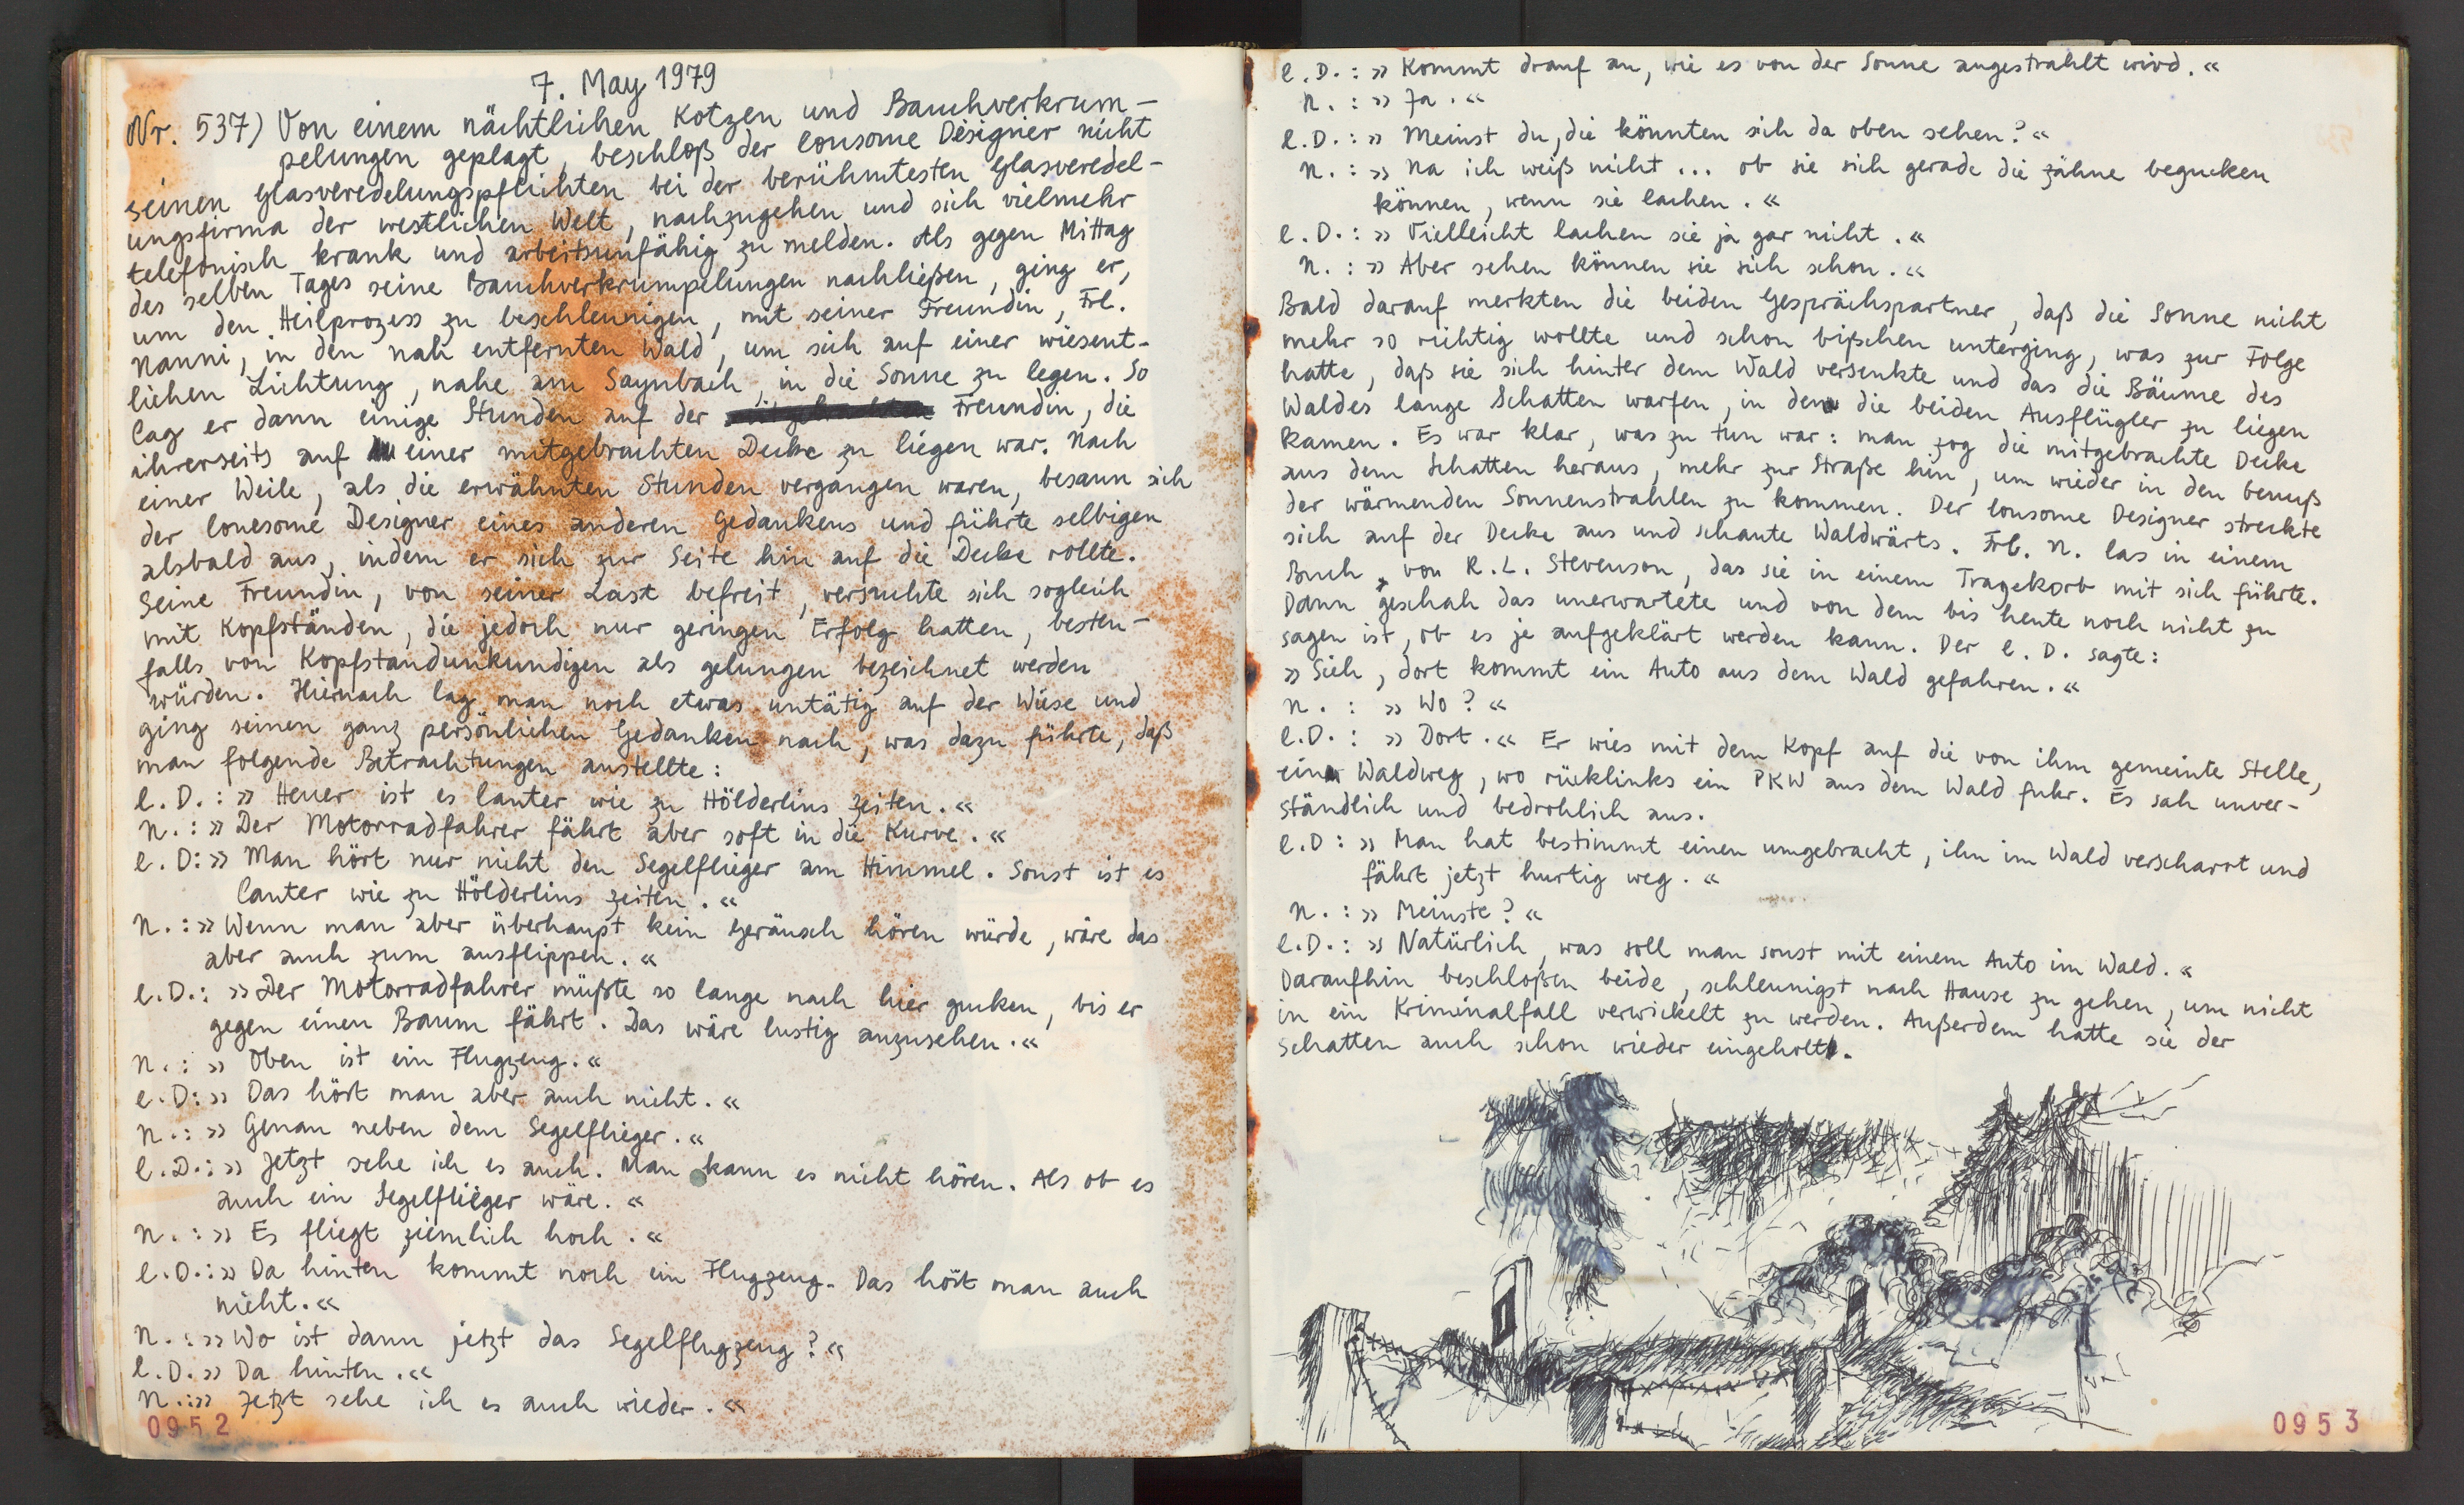 7. May 1979
Nr. 537) Von einem nächtlichen Kotzen und Bauchverkrum-
pelungen geplagt, beschloß der lonsome Designer nicht
seinen Glasveredelungspflichten bei der berühmtesten Glasveredel-
ungsfirma der westlichen Welt, nachzugehen und sich vielmehr
telefonisch krank und arbeitsunfähig zu melden. Als gegen Mittag
des selben Tages seine Bauchverkrumpelungen nachließen, ging er,
um den Heilprozess zu beschleunigen, mit seiner Freundin, Frl.
Nanni, in den nah entfernten Wald, um sich auf einer wiesent-
lichen Lichtung, nahe am Saynbach, in die Sonne zu legen. So
lag er dann einige Stunden auf der Freundin, die
ihrerseits auf einer mitgebrachten Decke zu liegen war. Nach
einer Weile, als die erwähnten Stunden vergangen waren, besann sich
der lonesome Designer eines anderen Gedankens und führte selbigen
alsbald aus, indem er sich zur Seite hin auf die Decke rollte.
Seine Freundin, von seiner Last befreit, versuchte sich sogleich
mit Kopfständen, die jedoch nur geringen Erfolg hatten, besten-
falls von Kopfstandunkundigen als gelungen bezeichnet werden
würden. Hiernach lag man noch etwas untätig auf der Wiese und
ging seinen ganz persönlichen Gedanken nach, was dazu führte, daß
man folgende Betrachtungen anstellte:
l. D. : » Heuer ist es lauter wie zu Hölderlins Zeiten. «
N. : » Der Motorradfahrer fährt aber soft in die Kurve. «
l. D: » Man hört nur nicht den Segelflieger am Himmel. Sonst ist es
lauter wie zu Hölderlins Zeiten. «
N. : » Wenn man aber überhaupt kein Geräusch hören würde, wäre das
aber auch zum ausflippen. «
l. D. : » Der Motorradfahrer müßte so lange nach hier gucken, bis er
gegen einen Baum fährt. Das wäre lustig anzusehen. «
N. : » Oben ist ein Flugzeug. «
l. D: » Das hört man aber auch nicht. «
N. : » Genau neben dem Segelflieger. «
l. D. : » Jetzt sehe ich es auch. Man kann es nicht hören. Als ob es
auch ein Segelflieger wäre. «
N. : » Es fliegt ziemlich hoch. «
l. D. : » Da hinten kommt noch ein Flugzeug. Das hört man auch
nicht. «
N. : » Wo ist dann jetzt das Segelflugzeug? «
l. D. » Da hinten. «
N. : » Jetzt sehe ich es auch wieder. «
0952
l. D. : » Kommt drauf an, wie es von der Sonne angestrahlt wird. «
N. : » Ja. «
l. D. : » Meinst du, die könnten sich da oben sehen? «
N. : » Na ich weiß nicht ... ob sie sich gerade die Zähne begucken
können, wenn sie lachen. «
l. D. : » Vielleicht lachen sie ja gar nicht. «
N. : » Aber sehen können sie sich schon. «
Bald darauf merkten die beiden Gesprächspartner, daß die Sonne nicht
mehr so richtig wollte und schon bißchen unterging, was zur Folge
hatte, daß sie sich hinter dem Wald versenkte und das die Bäume des
Waldes lange Schatten warfen, in dem die beiden Ausflügler zu liegen
kamen. Es war klar, was zu tun war: man zog die mitgebrachte Decke
aus dem Schatten heraus, mehr zur Straße hin, um wieder in den Genuß
der wärmenden Sonnenstrahlen zu kommen. Der lonsome Designer streckte
sich auf der Decke aus und schaute Waldwärts. Frl. N. las in einem
Buch, von R. L. Stevenson, das sie in einem Tragekorb mit sich führte.
Dann geschah das unerwartete und von dem bis heute noch nicht zu
sagen ist, ob es je aufgeklärt werden kann. Der l. D. sagte:
» Sieh, dort kommt ein Auto aus dem Wald gefahren. «
N. : » Wo? «
l. D. : » Dort. « Er wies mit dem Kopf auf die von ihm gemeinte Stelle,
ein Waldweg, wo rücklinks ein PKW aus dem Wald fuhr. Es sah unver-
ständlich und bedrohlich aus.
l. D : » Man hat bestimmt einen umgebracht, ihn im Wald verscharrt und
fährt jetzt hurtig weg. «
N. : » Meinste? «
l. D. : » Natürlich, was soll man sonst mit einem Auto im Wald. «
Daraufhin beschloßen beide, schleunigst nach Hause zu gehen, um nicht
in ein Kriminalfall verwickelt zu werden. Außerdem hatte sie der
Schatten auch schon wieder eingeholt.
0953